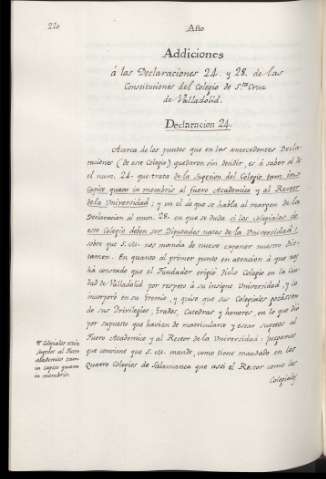 220
Año
Addiciones
á las Declaraciones 24. y 28. de las
Constituciones del Colegio de S.ta Cruz
de Valladolid.
Declaracion 24.
Acerca de los puntos que en las antecedentes Decla-
raciones (de ese Colegio) quedaron sin decidir, es á saber al de
el num. 24. que trata de la Sugecion del Colegio, tam in
capite quam in membris al fuero Academico y al Rector
de la Universidad; y en el de que se habla al margen de la
Declaracion al num. 28. en que se duda si los Colegiales de
ese Colegio deben ser Diputados natos de la Universidad;
sobre que S. M. nos manda de nuevo exponer nuestro Dic-
tamen. En quanto al primer punto en atencion á que nos
há constado que el Fundador erigió dicho Colegio en la Ciu-
dad de Valladolid por respeto á su insigne Universidad, y lo
incorporó en su Gremio, y quiso que sus Colegiales gozassen
de sus Privilegios, Grados, Catedras y honores, en lo que dió
por supuesto que havian de matricularse y estar sugetos al
Fuero Academico y al Rector de la Universidad: juzgamos
que conviene que S. M. mande, como tiene mandado en los
Quatro Colegios de Salamanca que assi el Rector como los
Colegiales
Colegiales estén
sugetos al fuero
academico tam
in capite quam
in membris.